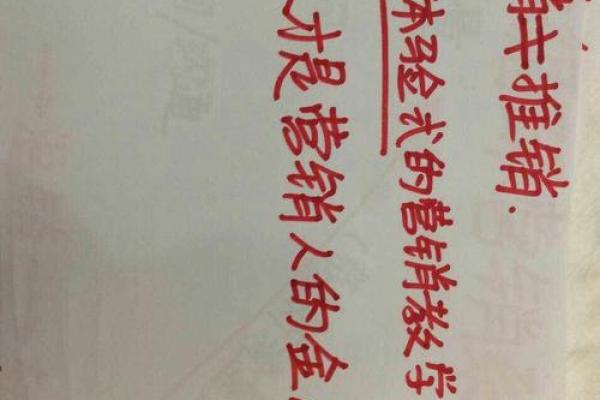 推销.
体验式的营销教学
才是营销人的金